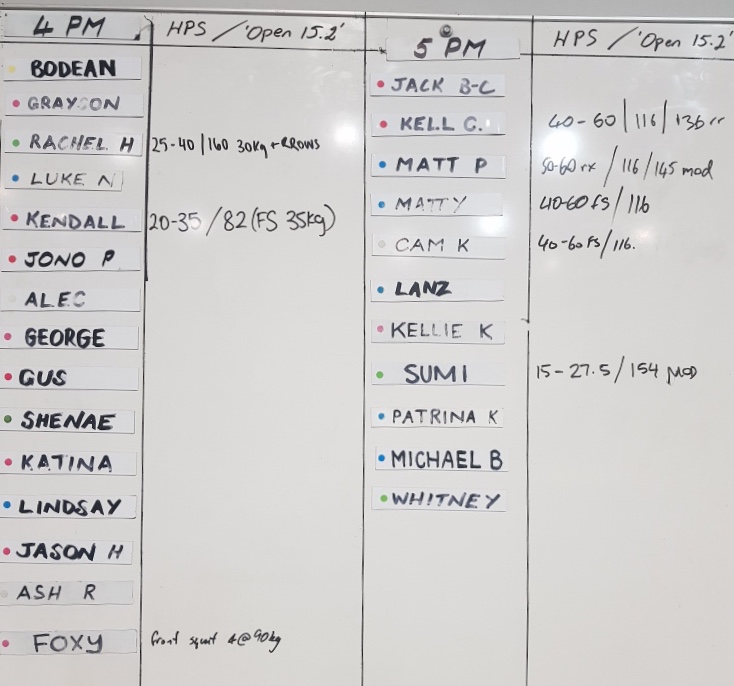 4 PM HPS / 'Open 15.2'
BODEAN
GRAYSON
RACHEL H 25-40 | 160 30kg + RROWS
LUKE N
KENDALL 20-35 / 82 (FS 35kg)
JONO P
ALEC
GEORGE
GUS
SHENAE
KATINA
LINDSAY
JASON H
ASH R
FOXY front squat 4@90kg
5 PM HPS / 'Open 15.2'
JACK B-C
KELL C. 40-60 | 116 | 136 rr
MATT P 50-60 rx / 116 / 145 mod
MATTY 40-60 FS / 116
CAM K 40-60 FS / 116.
LANZ
KELLIE K
SUMI 15-27.5 / 154 MOD
PATRINA K
MICHAEL B
WHITNEY